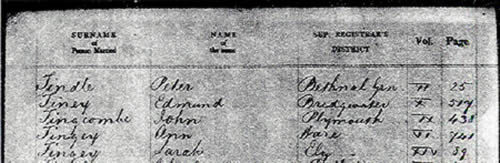 SURNAME of Person Married NAME of the same SUP. REGISTRAR'S DISTRICT Vol. Page
Tindle Peter Bethnal Grn II 25
Tiney Edmund Bridgwater X
Tingcombe John Plymouth IX 438
Tingey Ann Ware VI
Tingey Sarah Ely XIV 39